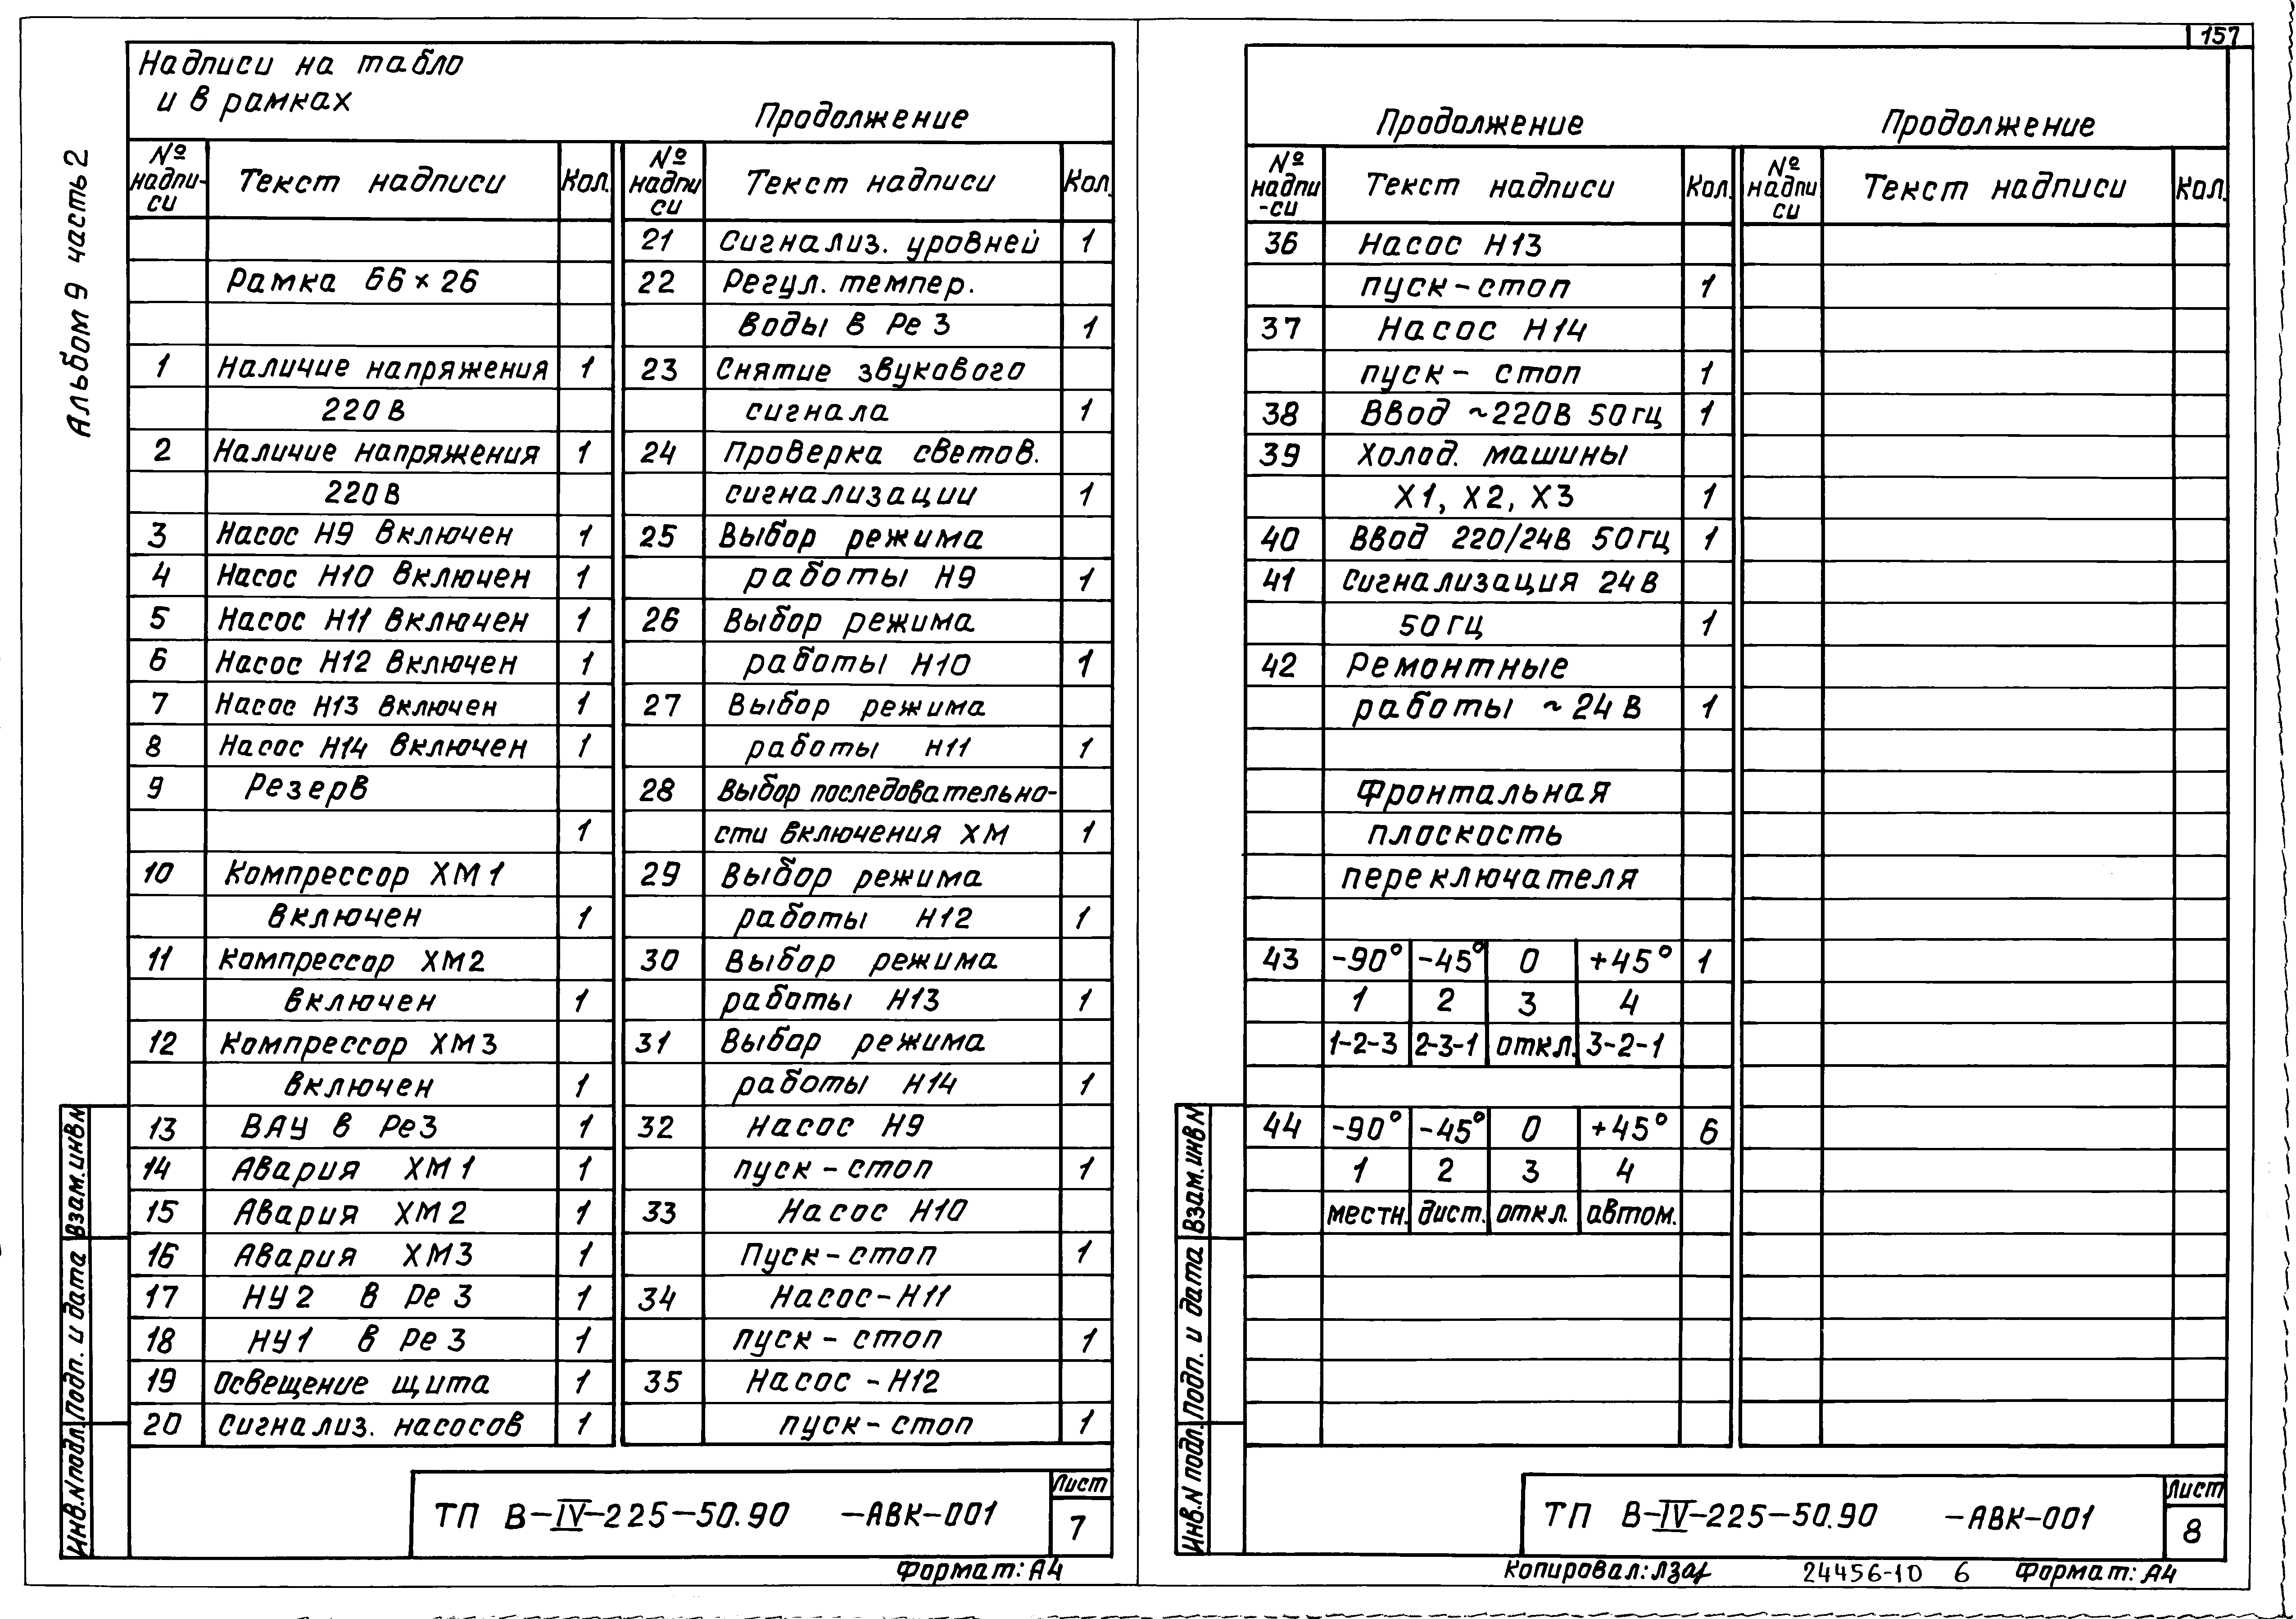 157
Альбом 9 часть 2
Надписи на табло
и в рамках
Продолжение
№ надпи-си Текст надписи Кол.
Рамка 66×26
1 Наличие напряжения 1
220В
2 Наличие напряжения 1
220В
3 Насос Н9 включен 1
4 Насос Н10 включен 1
5 Насос Н11 включен 1
6 Насос Н12 включен 1
7 Насос Н13 включен 1
8 Насос Н14 включен 1
9 Резерв
1
10 Компрессор ХМ1
включен 1
11 Компрессор ХМ2
включен 1
12 Компрессор ХМ3
включен 1
13 ВАУ в Ре3 1
14 Авария ХМ1 1
15 Авария ХМ2 1
16 Авария ХМ3 1
17 НУ2 в Ре3 1
18 НУ1 в Ре3 1
19 Освещение щита 1
20 Сигнализ. насосов 1
№ надпи си Текст надписи Кол.
21 Сигнализ. уровней 1
22 Регул. темпер.
воды в Ре3 1
23 Снятие звукового
сигнала 1
24 Проверка светов.
сигнализации 1
25 Выбор режима
работы Н9 1
26 Выбор режима
работы Н10 1
27 Выбор режима
работы Н11 1
28 Выбор последовательно-
сти включения ХМ 1
29 Выбор режима
работы Н12 1
30 Выбор режима
работы Н13 1
31 Выбор режима
работы Н14 1
32 Насос Н9
пуск-стоп 1
33 Насос Н10
Пуск-стоп 1
34 Насос-Н11
пуск-стоп 1
35 Насос-Н12
пуск-стоп 1
Инв.N подл. Подп. и дата Взам.инв N
ТП В-IV-225-50.90 -АВК-001
Лист
7
Формат: А4
Продолжение
№ надпи -си Текст надписи Кол.
36 Насос Н13
пуск-стоп 1
37 Насос Н14
пуск-стоп 1
38 Ввод ~220В 50гц 1
39 Холод. машины
Х1, Х2, Х3 1
40 Ввод 220/24В 50гц 1
41 Сигнализация 24В
50гц 1
42 Ремонтные
работы ~24В 1
Фронтальная
плоскость
переключателя
43 -90° -45° 0 +45° 1
1 2 3 4
1-2-3 2-3-1 откл. 3-2-1
44 -90° -45° 0 +45° 6
1 2 3 4
местн. дист. откл. автом.
Продолжение
№ надпи си Текст надписи Кол.
Инв.N подл. Подп. и дата Взам.инв N
ТП В-IV-225-50.90 -АВК-001
Лист
8
Копировал: 24456-10 6 Формат: А4